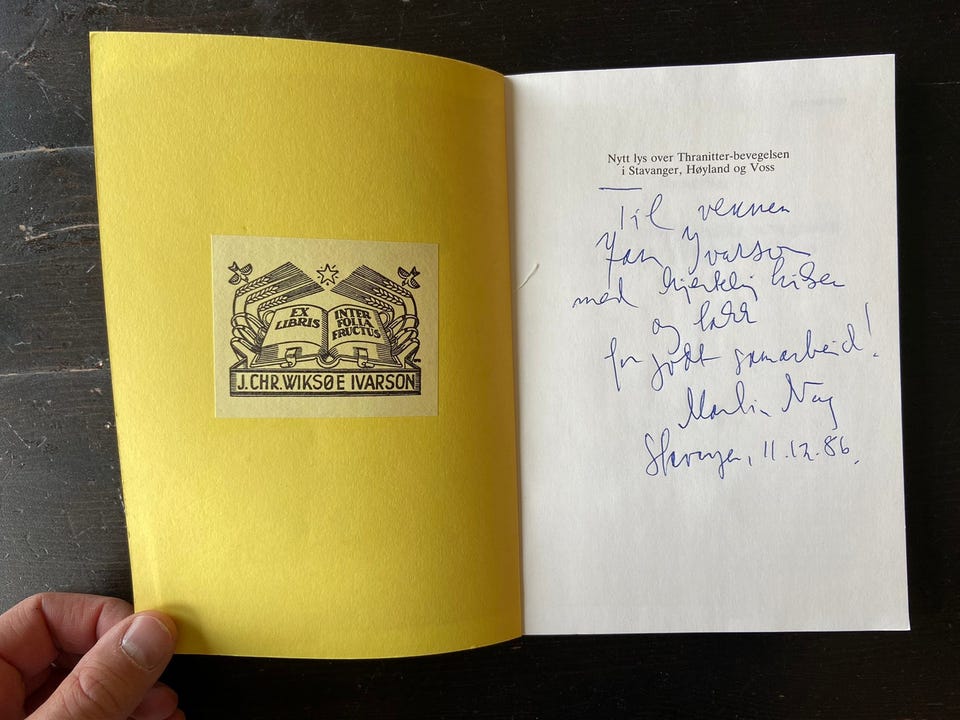 EX
LIBRIS
INTER
FOLIA
FRUCTUS
J. CHR. WIKSØE IVARSON
Nytt lys over Thranitter-bevegelsen
i Stavanger, Høyland og Voss
Til vennen
Jan Ivarson
med hjertelig hilsen
og takk
for godt samarbeid!
Martin Nag
Stavanger, 11.12.86.